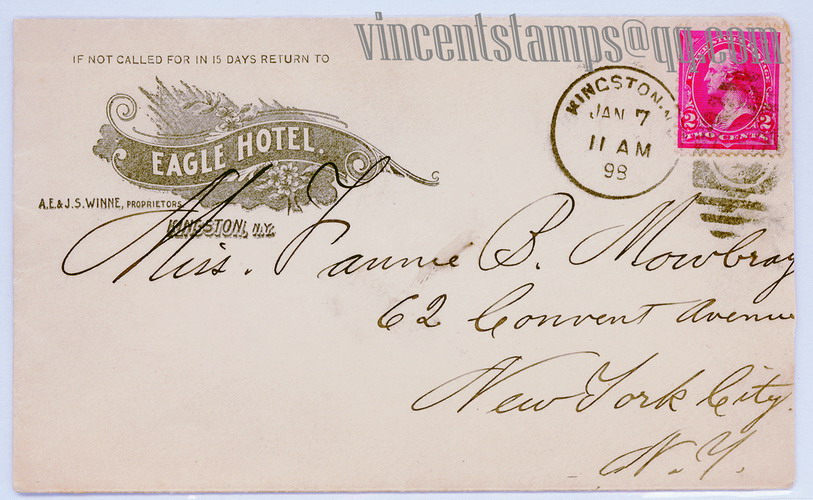 vincentstamps@qq.com
IF NOT CALLED FOR IN 15 DAYS RETURN TO
EAGLE HOTEL.
A.E. & J.S. WINNE, PROPRIETORS.
KINGSTON, N.Y.
KINGSTON, N
JAN 7
11 AM
98
2 2
TWO CENTS
Miss. Fannie B. Mowbray
62 Convent Avenue
New York City.
N.Y.